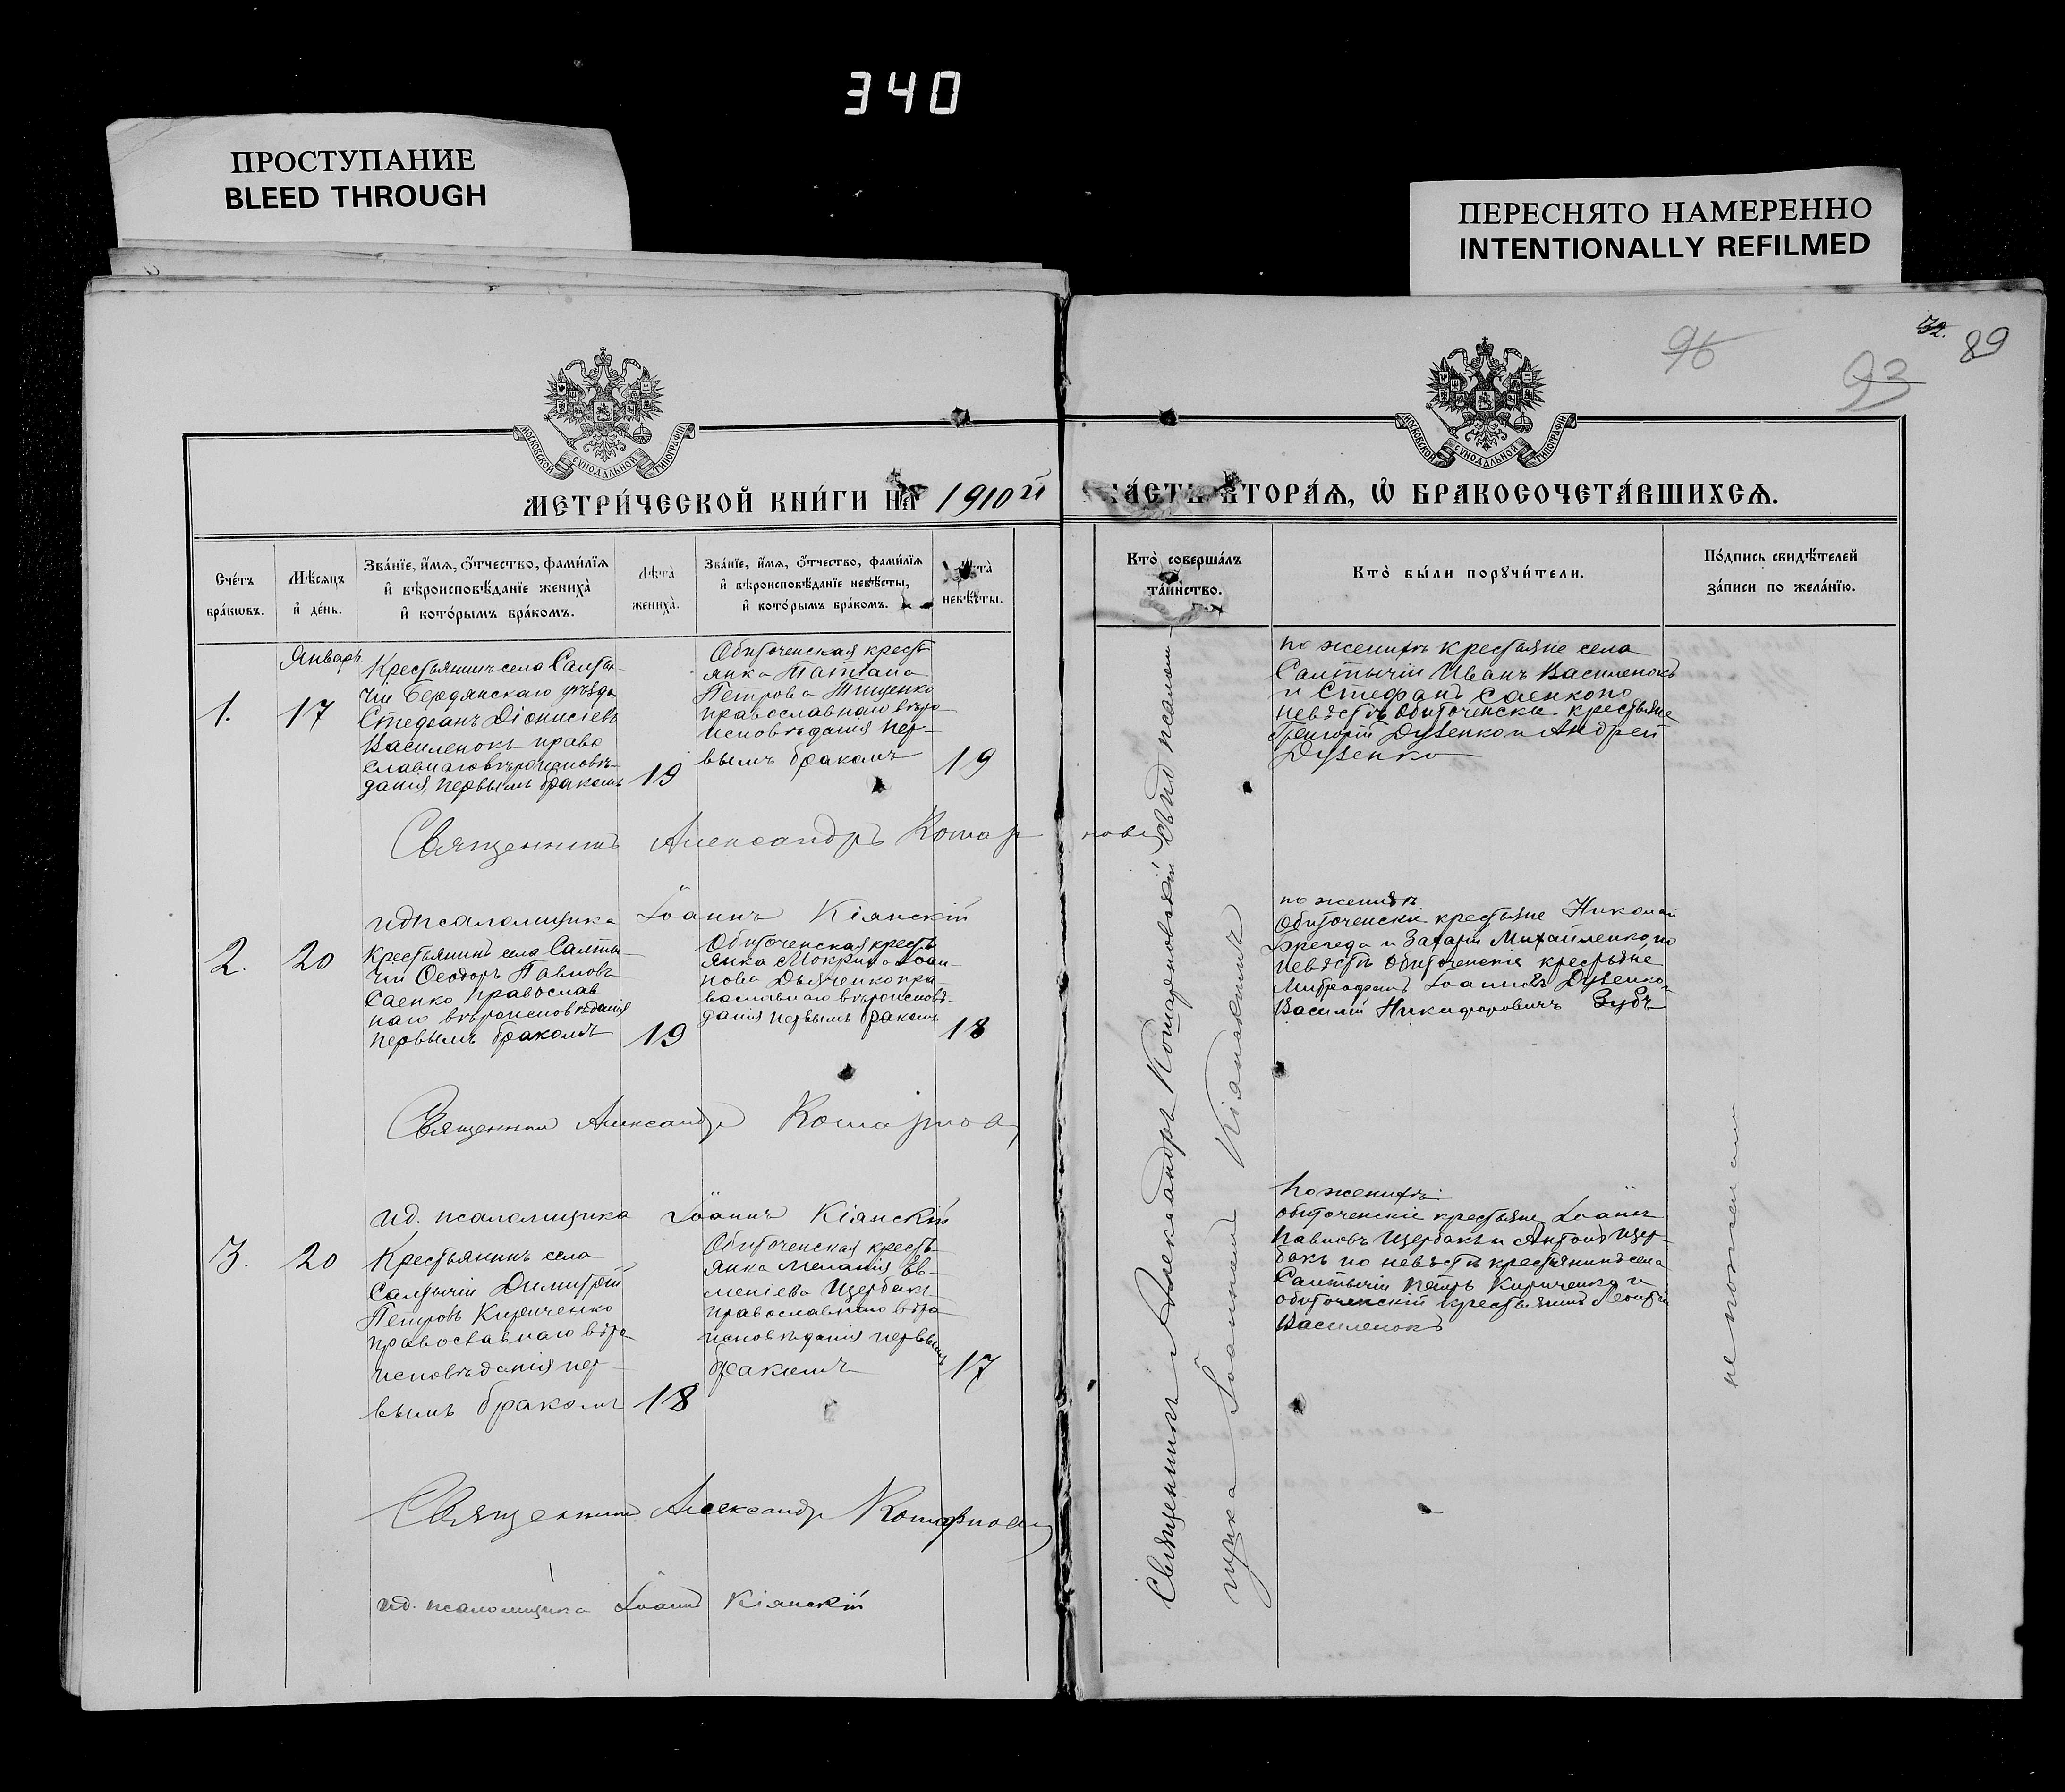 340
ПРОСТУПАНИЕ
BLEED THROUGH
ПЕРЕСНЯТО НАМЕРЕННО
INTENTIONALLY REFILMED
96
93
32.
89
МОСКОВСКОЙ СѴНОДАЛЬНОЙ ТИПОГРАФІИ
МОСКОВСКОЙ СѴНОДАЛЬНОЙ ТИПОГРАФІИ
МЕТРИ́ЧЕСКОЙ КНИ́ГИ НА̀ 1910й
ЧА́СТЬ ВТОРА́Ѧ, Ѽ БРАКОСОЧЕТА́ВШИХСѦ.
Сче́тъ
бра́кѡвъ.
Мѣ́сѧцъ
и҆ де́нь.
Зва́нїе, и҆́мѧ, о҆́тчество, фами́лїѧ
и҆ вѣроисповѣ́данїе жениха̀
и҆ кото́рымъ бра́комъ.
Лѣ́та̀
жениха̀.
Зва́нїе, и҆́мѧ, о҆́тчество, фами́лїѧ
и҆ вѣроисповѣ́данїе невѣ́сты,
и҆ кото́рымъ бра́комъ.
Лѣ́та̀
невѣ́сты.
Кто̀ соверша́лъ
та́инство.
Кто̀ бы́ли порꙋчи́тели.
По́дпись свидѣ́телей
за́писи по жела́нїю.
Январь
1.
17
Крестьянинъ села Салты-
чіи Бердянскаго уѣзда
Стефанъ Діонисіевъ
Василенокъ право
славнаго вѣроисповѣ-
данія первымъ бракомъ
19
Обиточенская кресть
янка Татіана
Петрова Тищенко
православнаго вѣро
исповѣданія пер-
вымъ бракомъ
19
по женихѣ крестьяне села
Салтычіи Иванъ Василенокъ
и Стефанъ Саенко по
невѣстѣ Обиточенски крестьяне
Григорій Дуденко и Андрей
Дуденко
Священникъ Александръ
ид псаломщика Іоаннъ Кіянскій
2.
20
Крестьянинъ села Салты-
чіи Ѳеодоръ Павловъ
Саенко православ
наго вѣроисповѣданія
первымъ бракомъ
19
Обиточенская кресть
янка Мокрина Іоан-
нова Дьяченко пра-
вославнаго вѣроисповѣ-
данія первымъ бракомъ
18
по женихѣ
Обиточенскіе крестьяне Николай
и Захарій Михайленко по
невѣстѣ Обиточенскіе крестьяне
Митрофанъ Іоанновъ Дуденко
Василій Никифоровичъ Зубъ
Священникъ Александръ
ид. псаломщика Іоаннъ Кіянскій
3.
20
Крестьянинъ села
Салтычіи Димитрій
Петровъ Кириченко
православнаго вѣро-
исповѣданія пер-
вымъ бракомъ
18
Обиточенская кресть-
янка Меланія Ев-
меніева Щербакъ
православнаго вѣро
исповѣданія первымъ
бракомъ
17
По женихѣ:
обиточенскіе крестьяне Іоаннъ
Павловъ Щербакъ и Антонъ Щер-
бакъ по невѣстѣ крестьянинъ села
Салтычіи Петръ Кириченко и
обиточенскій крестьянинъ Леонтій
Василенокъ
Священникъ Александръ
ид. псаломщика Іоаннъ Кіянскій
Священникъ Александръ псалом-
щика Іоанникій Кіянскій
не пожелали